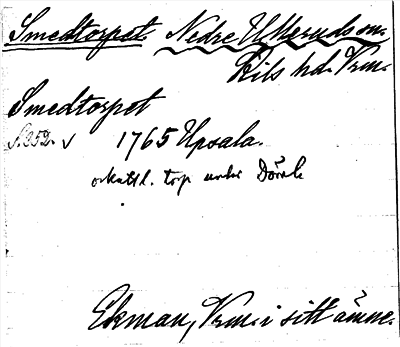 Smedtorpet. Nedre Ulleruds sn.
Kils hd. Vrm.
Smedtorpet
S. 352. v 1765 Upsala.
torp under
Ekman, Vrm. i sitt ämne.